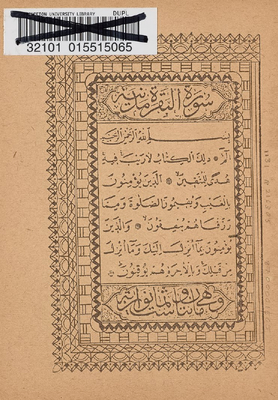 PRINCETON UNIVERSITY LIBRARY DUPL
32101 015515065
سورة البقرة مدنية
بسم الله الرحمن الرحيم
الم ذلك الكتاب لا ريب فيه
هدى للمتقين الذين يؤمنون
بالغيب ويقيمون الصلوة ومما
رزقناهم ينفقون والذين
يؤمنون بما أنزل اليك وما أنزل
من قبلك وبالآخرة هم يوقنون
وهي مائتان وست وثمانون آية